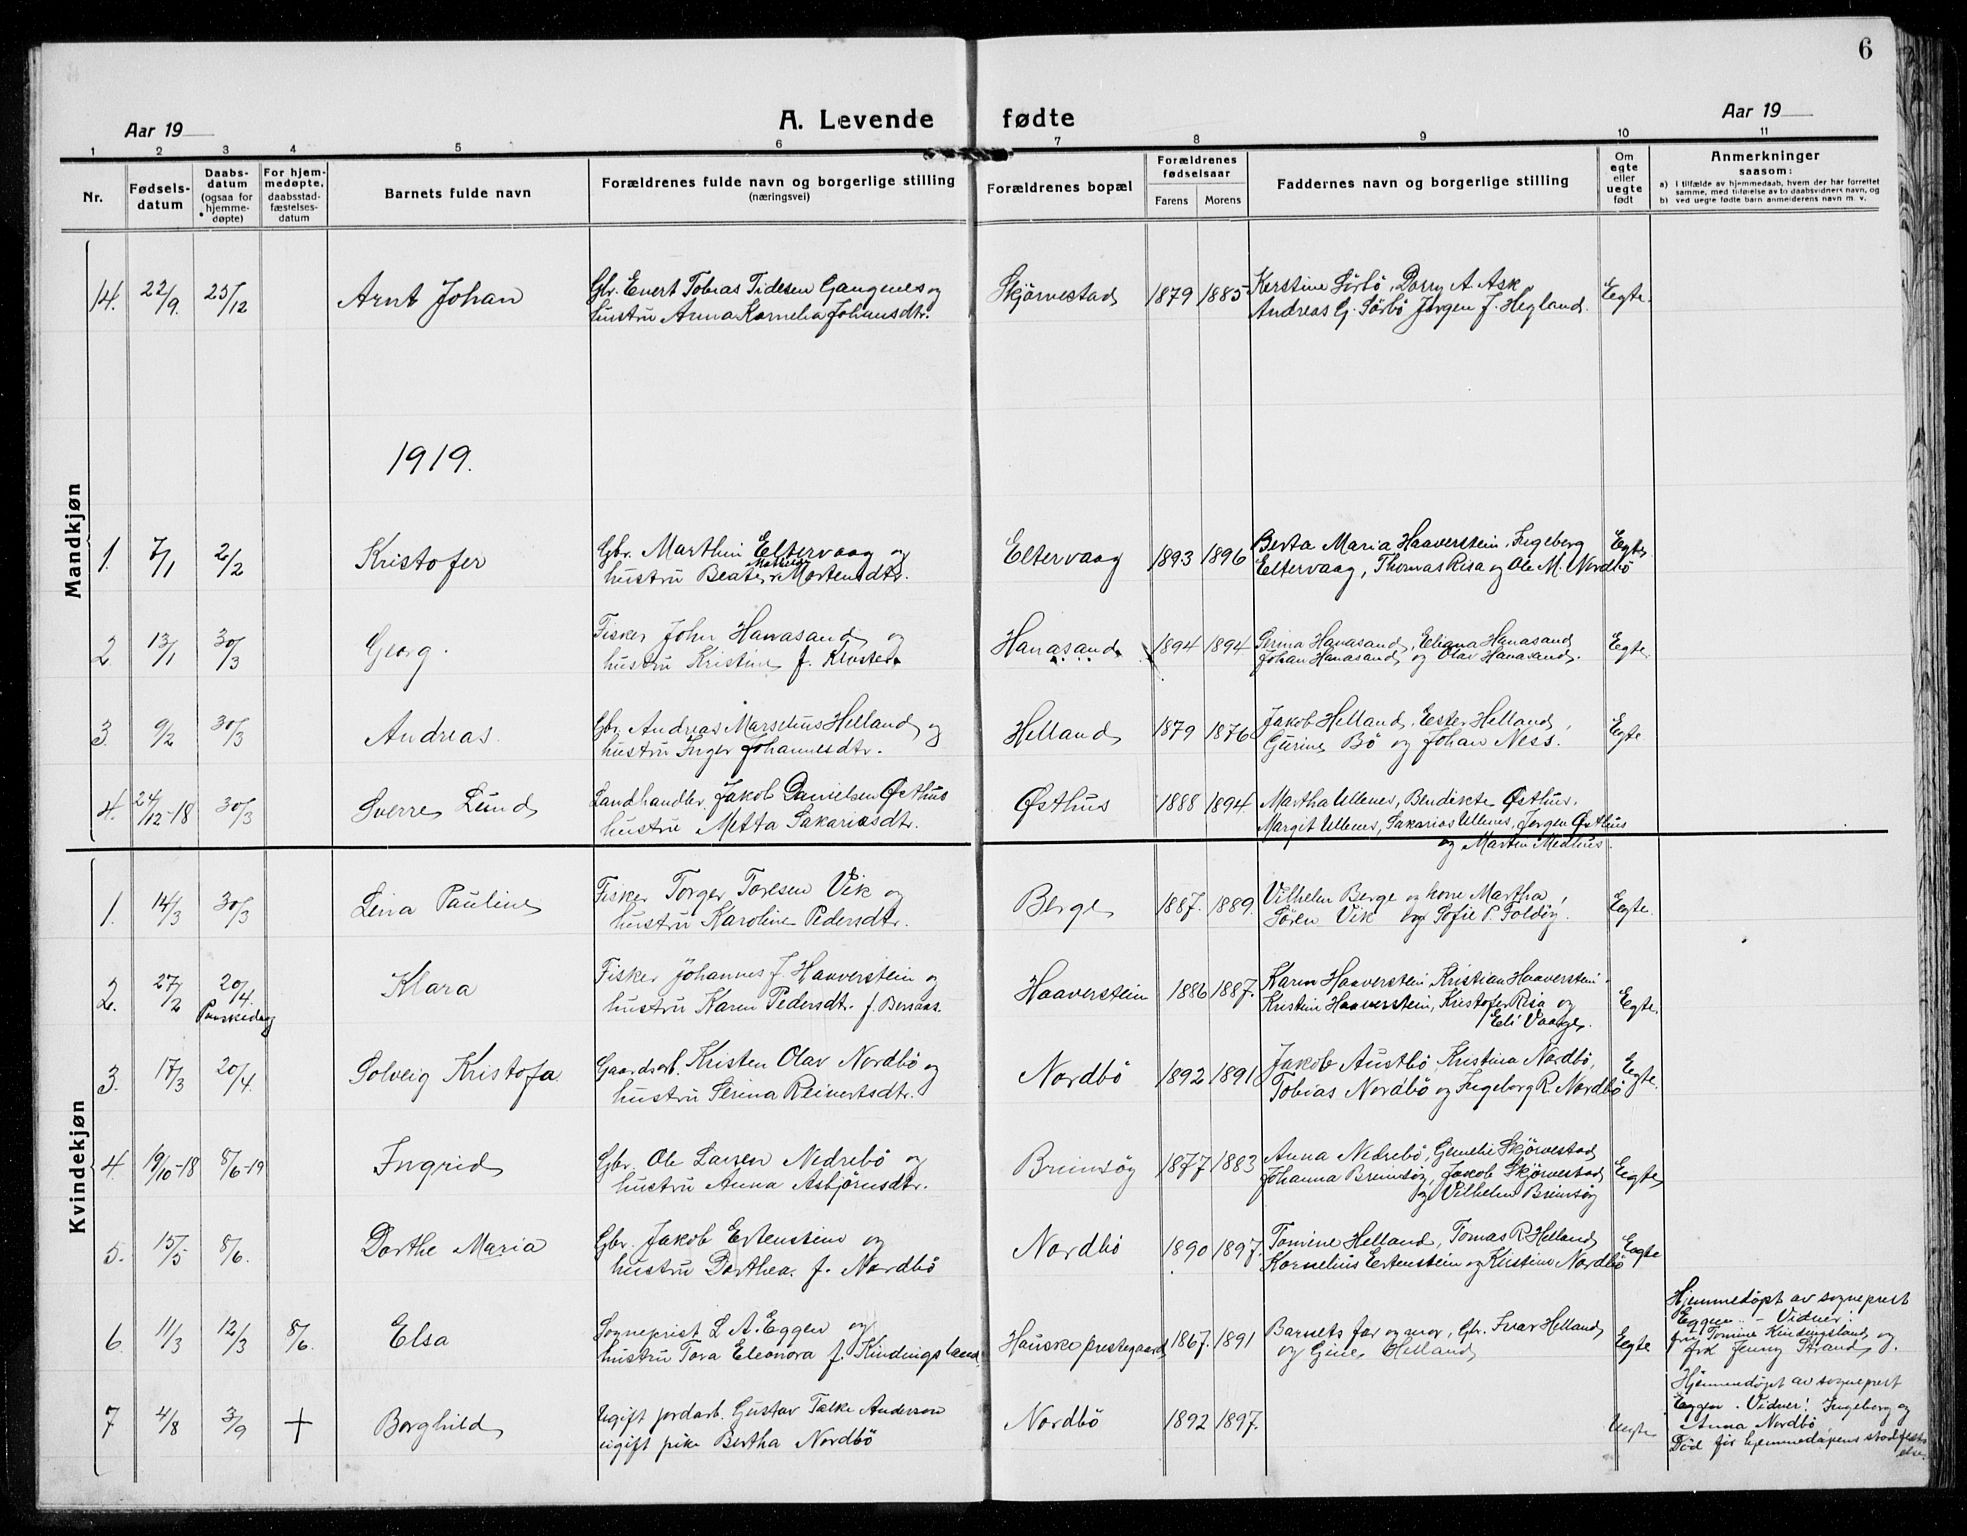 6
Aar 19
A. Levende fødte
Aar 19
1 2 3 4 5 6 7 8 9 10 11
Nr.
Fødsels-
datum
Daabs-
datum
(ogsaa for
hjemme-
døpte)
For hjem-
medøpte,
daabsstad-
fæstelses-
datum
Barnets fulde navn
Forældrenes fulde navn og borgerlige stilling
(næringsvei)
Forældrenes bopæl
Forældrenes
fødselsaar
Farens Morens
Faddernes navn og borgerlige stilling
Om
egte
eller
uegte
født
Anmerkninger
saasom:
a) i tilfælde av hjemmedaab, hvem der har forrettet
samme, med tilføielse av to daabsvidners navn, og
b) ved uegte fødte barn anmelderens navn m. v.
Mandkjøn
14. 22/9. 25/12 Arnt Johan
Gbr. Enert Tobias Tidesen Gangenes og
hustru Anna Kornelia Johansdtr.
Skjørvestad 1879 1885
Kerstine Sörbö, Dorry A. Ask
Andreas G. Sörbö Jørgen J. Hegland.
Egte.
1919.
1. 7/1 2/2 Kristofer
Gbr. Marthin Eltervaag og
hustru Beate Mathea Mortensdtr.
Eltervaag 1893 1896
Berta Maria Haaverstein, Ingeborg
Eltervaag, Thomas Risa og Ole M. Nordbö
Egte
2. 13/1 30/3 Georg.
Fisker John Hanasand og
hustru Kristine f. Kloster
Hanasand 1894 1894
Serina Hanasand, Eliana Hanasand
Johan Hanasand og Olav Hanasand.
Egte.
3. 9/2 30/3 Andreas.
Gbr Andreas Marselius Helland og
hustru Inger Johannesdtr.
Helland 1879 1876
Jakob Helland, Ester Helland,
Gurine Bö og Johan Ness.
Egte
4. 24/12-18 30/3 Sverre Lund
Landhandler Jakob Danielsen Østhus
hustru Metta Sakariasdtr.
Østhus 1888 1894.
Martha Ullenes, Bendikte Østhus,
Margit Ullenes, Sakarias Ullenes, Jørgen Østhus
og Marten Medhus.
Kvindekjøn
1. 14/3 30/3 Lina Pauline
Fisker Torger Toresen Vik og
hustru Karoline Pedersdtr.
Berge 1887. 1889.
Vilhelm Berge og kone Martha,
Sören Vik og Sofie P. Foldöy.
Egte.
2. 27/2 20/4. Paaskedag Klara
Fisker Johannes J. Haaverstein og
hustru Karen Pedersdtr. f. Bersaas.
Haaverstein 1886 1887.
Karen Haaverstein, Kristian Haaverstein,
Kristine Haaverstein, Kristofer Risa og
Eli Vaage.
Egte.
3. 17/3 20/4. Solveig Kristofa.
Gaardsarb. Kristen Olav Nordbö og
hustru Serina Reinertsdtr.
Nordbö 1892 1891
Jakob Austbö, Kristina Nordbö,
Tobias Nordbö og Ingeborg R. Nordbö
Egte.
4. 19/10-18 8/6-19 Ingrid
Gbr. Ole Larsen Nedrebö og
hustru Anna Asbjörnsdtr.
Brimsöy 1877 1883
Anna Nedrebö, Gemelie Skjörvestad
Johanna Brimsöy, Jakob Skjörvestad
og Vilhelm Brimsöy
Egte
5. 15/5 8/6. Dorthe Maria
Gbr. Jakob Ertenstein og
hustru Dorthea f. Nordbö
Nordbö 1890 1897.
Tomine Helland, Tomas R. Helland
Kornelius Ertenstein og Kristine Nordbö
Egte
6. 11/3 12/3 8/6. Elsa
Sogneprest L. A. Eggen og
hustru Tora Eleonora f. Kindingsland
Hausken prestegaard 1867. 1891
Barnets far og mor, Gbr. Ivar Helland
og Gine Helland
Egte
Hjemmedøpt av sogneprest
Eggen. - Vidner:
fru Tomine Kindingsland og
frk Jenny Strand.
7 4/8 3/9 + Borghild
Ugift jordarb. Gustav Falke Anderson
ugift pike Bertha Nordbö
Nordbö 1892 1897.
Uegte
Hjemmedøpt av sogneprest
Eggen. Vidner: Ingeborg og
Anna Nordbö
Död før hjemmedaapens stadfæst-
else.